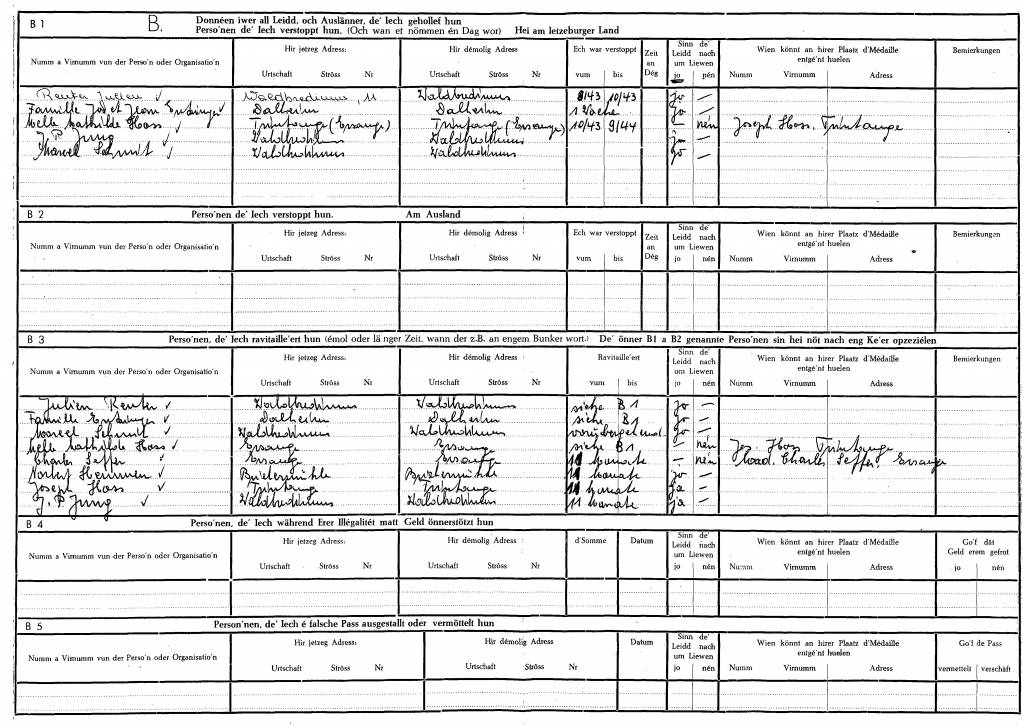 B 1 B. Donnéen iwer all Leidd, och Auslänner, de' Iech gehollef hun
Perso'nen de' Iech verstoppt hun. (Och wan et nömmen én Dag wor) Hei am letzeburger Land
Numm a Virnumm vun der Perso'n oder Organisatio'n
Hir jetzeg Adress:
Urtschaft Ströss Nr
Hir démolig Adress
Urtschaft Ströss Nr
Ech war verstoppt
vum bis
Zeit an Dég
Sinn de' Leidd nach um Liewen
jo nén
Wien könnt an hirer Plaatz d'Médaille entgé'nt huelen
Numm Virnumm Adress
Bemierkungen
Reuter Julien ✓ Waldbredimus, 11 Waldbredimus 8/43 10/43 Jo —
Famille Jos et Jean Dalheim Dalheim 1 Woche Jo —
Melle Mathilde Hoss ✓ Trintange (Ersange) Trintange (Ersange) 10/43 9/44 — nén Joseph Hoss, Trintange
J.P. Jung ✓ Waldbredimus Waldbredimus Jo —
Marcel Schmit ✓ Waldbredimus Waldbredimus Jo —
B 2 Perso'nen de' Iech verstoppt hun. Am Ausland
Numm a Virnumm vun der Perso'n oder Organisatio'n
Hir jetzeg Adress:
Urtschaft Ströss Nr
Hir démolig Adress
Urtschaft Ströss Nr
Ech war verstoppt
vum bis
Zeit an Dég
Sinn de' Leidd nach um Liewen
jo nén
Wien könnt an hirer Plaatz d'Médaille entgé'nt huelen
Numm Virnumm Adress
Bemierkungen
B 3 Perso'nen, de' Iech ravitaille'ert hun (émol oder länger Zeit, wann der z.B. an engem Bunker wort.) De' önner B1 a B2 genannte Perso'nen sin hei nöt nach eng Ke'er opzeziélen
Numm a Virnumm vun der Perso'n oder Organisatio'n
Hir jetzeg Adress:
Urtschaft Ströss Nr
Hir démolig Adress
Urtschaft Ströss Nr
Ravitaille'ert
vum bis
Sinn de' Leidd nach um Liewen
jo nén
Wien könnt an hirer Plaatz d'Médaille entgé'nt huelen
Numm Virnumm Adress
Bemierkungen
Julien Reuter ✓ Waldbredimus Waldbredimus siehe B 1 Jo —
Famille ✓ Dalheim Dalheim siehe B 1 Jo —
Marcel Schmit ✓ Waldbredimus Waldbredimus vorübergehend Jo —
Melle Mathilde Hoss ✓ Ersange Ersange siehe B 1 — nén Jos. Hoss Trintange
Charles Seffer ✓ Ersange Ersange 11 Monate — nén Mad. Charles Seffer, Ersange
Hemmen ✓ 11 Monate Jo —
Joseph Hoss ✓ Trintange Trintange 11 Monate Ja —
J. P. Jung ✓ Waldbredimus Waldbredimus 11 Monate Ja —
B 4 Perso'nen, de' Iech während Erer Illégalitét matt Geld önnerstötzt hun
Numm a Virnumm vun der Perso'n oder Organisatio'n
Hir jetzeg Adress:
Urtschaft Ströss Nr
Hir démolig Adress
Urtschaft Ströss Nr
d'Somme
Datum
Sinn de' Leidd nach um Liewen
jo nén
Wien könnt an hirer Plaatz d'Médaille entgé'nt huelen
Numm Virnumm Adress
Go'f dät Geld erem gefrot
jo nén
B 5 Person'nen, de' Iech é falsche Pass ausgestallt oder vermöttelt hun
Numm a Virnumm vun der Perso'n oder Organisatio'n
Hir jetzeg Adress:
Urtschaft Ströss Nr
Hir démolig Adress
Urtschaft Ströss Nr
Datum
Sinn de' Leidd nach um Liewen
jo nén
Wien könnt an hirer Plaatz d'Médaille entgé'nt huelen
Numm Virnumm Adress
Go'f de Pass
vermettelt verschäft